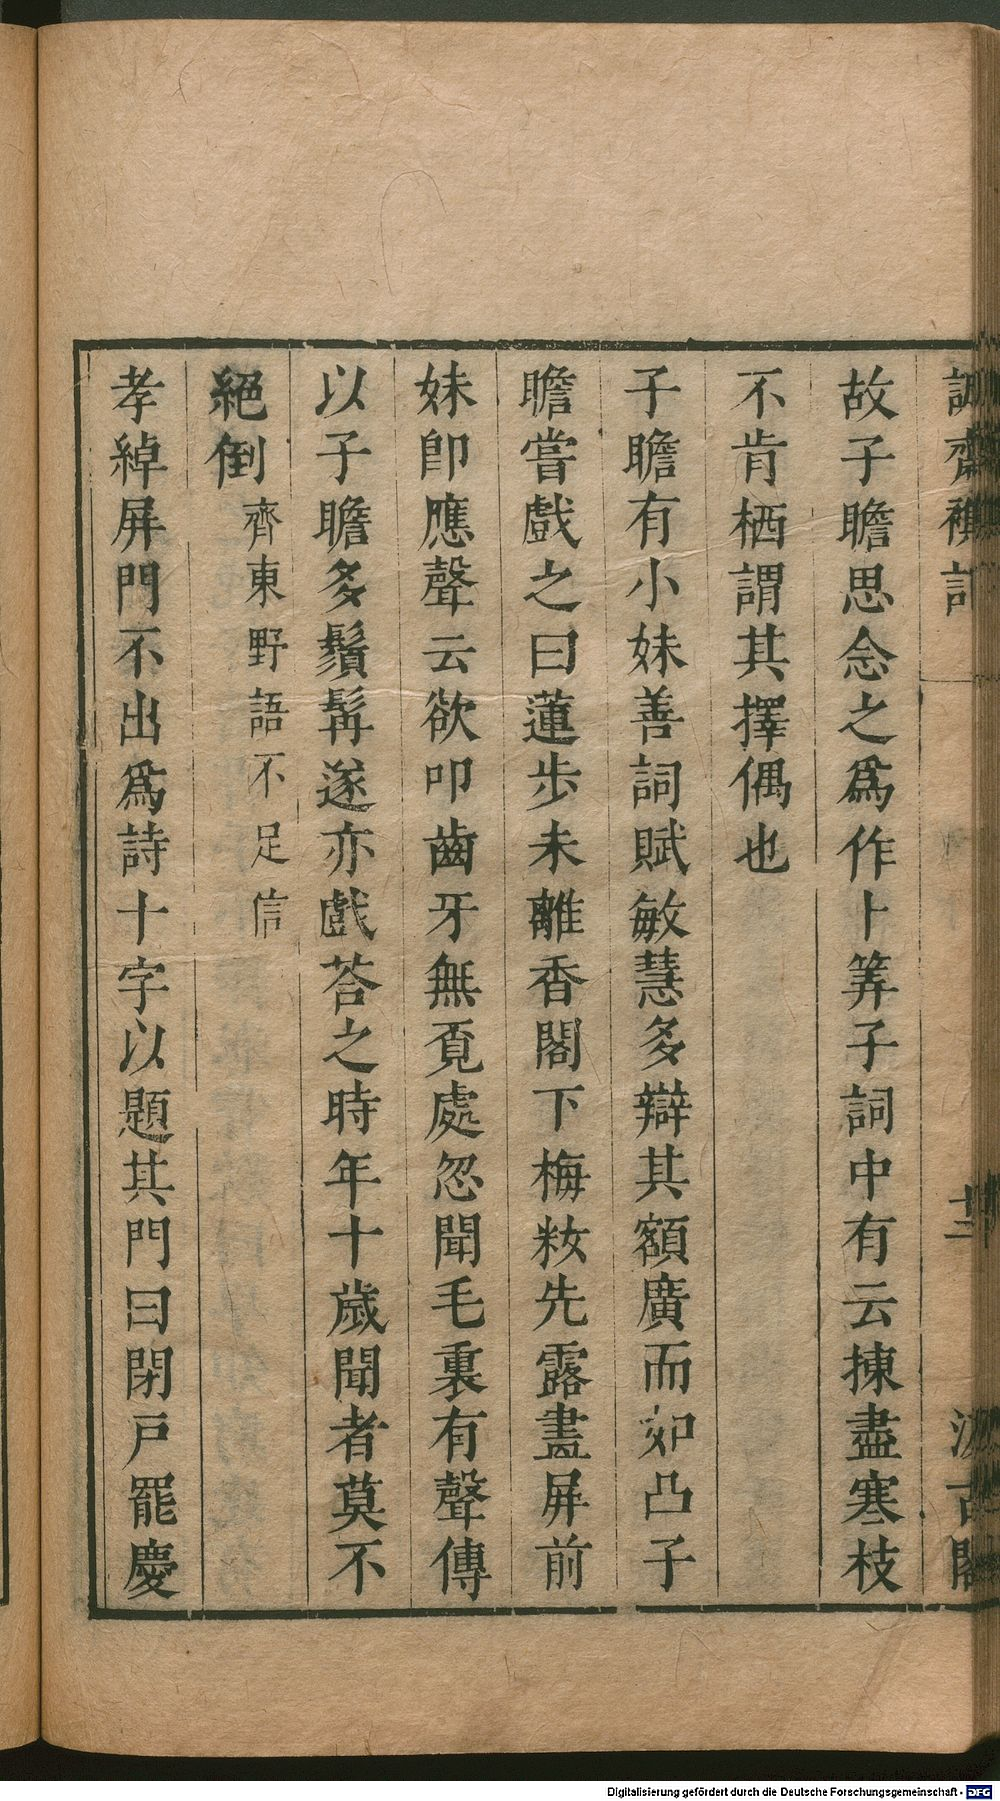 故子瞻思念之爲作卜筭子詞中有云揀盡寒枝
不肯栖謂其擇偶也
子瞻有小妹善詞賦敏慧多辯其額廣而如凸子
瞻嘗戲之曰蓮步未離香閣下梅籹先露畫屏前
妹卽應聲云欲叩齒牙無覔處忽聞毛裏有聲傳
以子瞻多鬚髯遂亦戲荅之時年十歲聞者莫不
絕倒齊東野語不足信
孝綽屏門不出爲詩十字以題其門曰閉戸罷慶
Digitalisierung gefördert durch die Deutsche Forschungsgemeinschaft - DFG